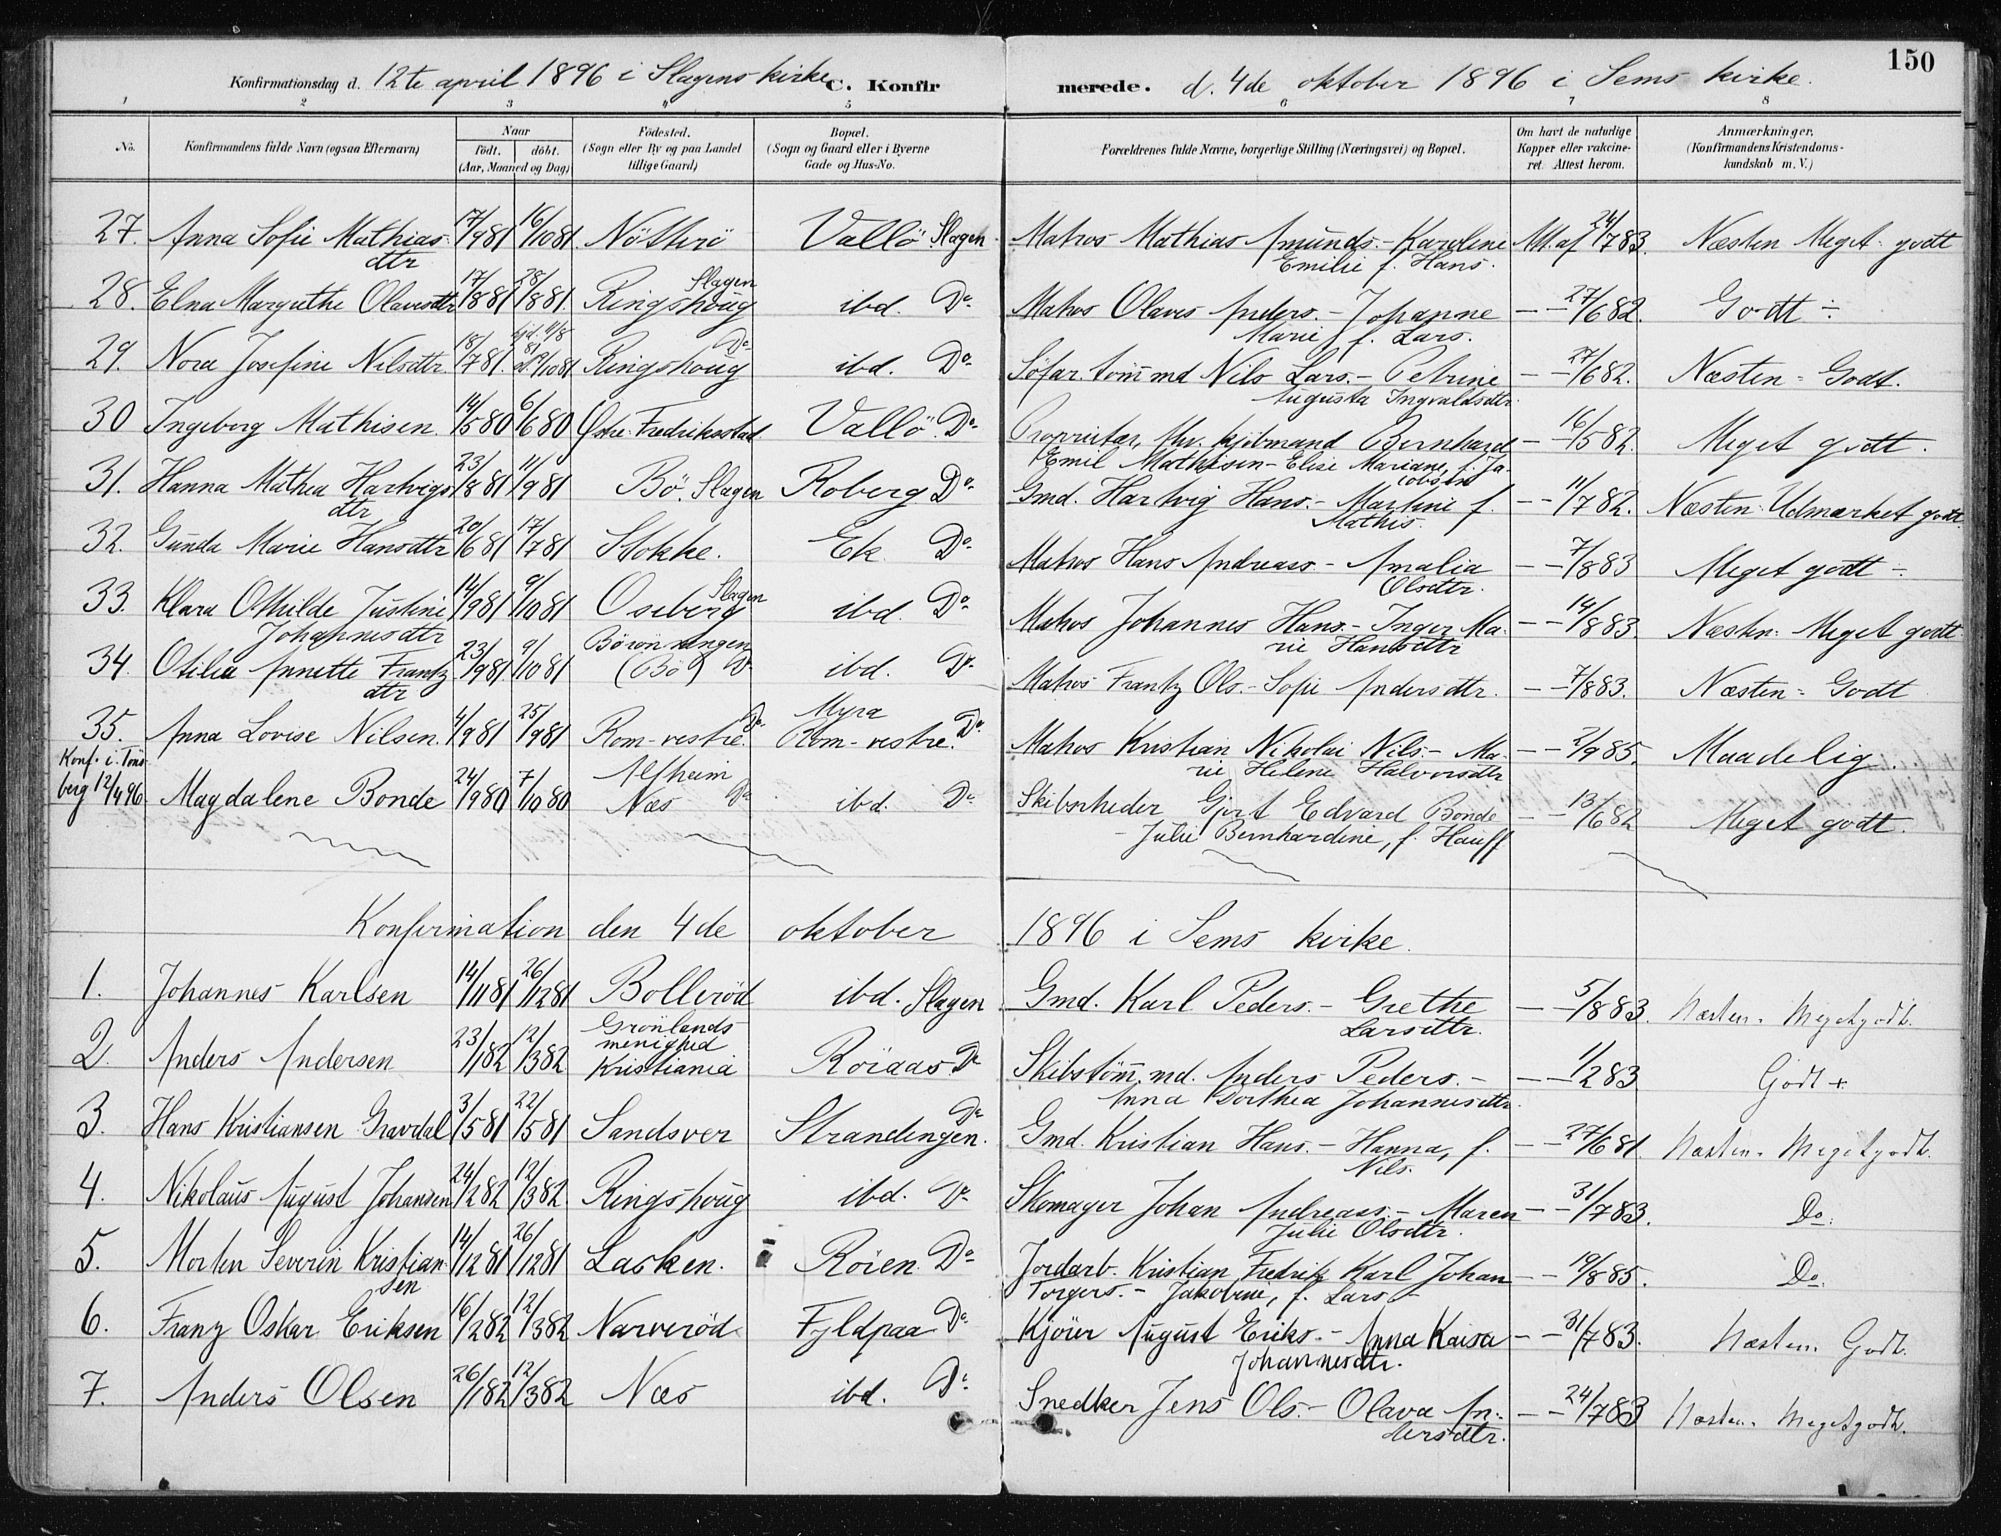 150
Konfirmationsdag d. 12te april 1896 i Slagens kirke C. Konfirmerede. d. 4de oktober 1896 i Sems kirke.
1 2 3 4 5 6 7 8
No. Konfirmandens fulde Navn (ogsaa Efternavn) Naar født. døbt. (Aar, Maaned og Dag) Fødested. (Sogn eller By og paa Landet tillige Gaard) Bopæl. (Sogn og Gaard eller i Byerne Gade og Hus-No. Forældrenes fulde Navne, borgerlige Stilling (Næringsvei) og Bopæl. Om havt de naturlige Kopper eller vakcineret. Attest herom. Anmærkninger. (Konfirmandens Kristendomskundskab m. V.)
27. Anna Sofie Mathiasdtr 17/9 81 16/10 81 Nötterö Vallö Slagen. Matros Mathias Amunds. - Karoline Emilie f. Hans. Att. af 24/7 83. Næsten Meget godt
28. Elna Margrethe Olavesdtr 17/8 81 28/8 81. Ringshoug Slagen ibd. Do. Matros Olaves Anders. - Johanne Marie f. Lars. — 27/6 82. Godt ÷
29. Nora Josefine Nilsdtr 18/7 81. 9/10 81 Ringshoug Do. ibd. Do. Søfar. tømmd Nils Lars. - Petrine Augusta Ingvaldsdtr. — 27/6 82. Næsten = Godt.
30 Ingeborg Mathisen. 14/5 80 6/6 80 Østre Fredriksstad Vallö. Do. Proprietær, fhv. kjøbmand Bernhard Emil Mathisen - Elise Mariane, f. Jacobsen — 16/5 82. Meget godt.
31. Hanna Mathea Hartvigsdtr 23/8 81 11/9 81 Bö. Slagen Roberg Do. Gmd. Hartvig Hans. - Martine f. Mathis. — 11/7 82. Næsten Udmærket godt.
32. Gunda Marie Hansdtr 20/6 81 17/7 81 Stokke. Ek Do. Matros Hans Andreass. - Amalia Olsdtr. — 7/8 83 Meget godt ÷
33. Klara Othilde Justine Johannesdtr 14/9 81 9/10 81 Oseberg Slagen ibd. Do. Matros Johannes Hans. - Inger Marie Hansdtr — 14/8 83. Næsten Meget godt.
34. Otilia Annette Frantzdtr 23/9 81 9/10 81 (Bö) Do ibd. Do. Matros Frantz Ols. - Sofie Andersdtr. — 7/8 83. Næsten = Godt
35. Anna Lovise Nilsen. 4/9 81 25/9 81 Rom-vestre. Do. Myra Rom-vestre. Do. Matros Kristian Nikolai Nils. - Marie Helene Halvorsdtr — 2/9 85. Maadelig.
Konf. i Tönsberg 12/4 96. Magdalene Bonde 24/9 80 7/10 80 Alfheim Næs Do. ibd. Do. Skibsrheder Gjert Edvard Bonde - Julie Bernhardine, f. Hauff — 13/6 82 Meget godt.
Konfirmation den 4de oktober 1896 i Sems kirke.
1. Johannes Karlsen 14/11 81 26/12 81 Bolleröd ibd. Slagen Gmd. Karl Peders. - Grethe Larsdtr. — 5/8 83. Næsten Megetgodt.
2. Anders Andersen 23/1 82 12/3 82 Grönlands menighed Kristiania Röiaas Do. Skibstømmd. Anders Peders. - Anna Dorthea Johannesdtr. — 1/2 83 Godt +
3. Hans Kristiansen Gravdal 3/5 81 22/5 81 Sandsver Strandengen. Do. Gmd. Kristian Hans. - Hanna, f. Nils. — 27/6 81. Næsten Megetgodt.
4. Nikolaus August Johansen 24/2 82 12/3 82. Ringshoug ibd. Do. Skomager Johan Andreass. - Maren Julie Olsdtr. — 31/7 83. Do.
5. Morten Severin Kristiansen 14/12 81 26/12 81 Lasken. Röien. Do. Jordarb. Kristian Fredrik Karl Johan Torgers. - Jakobine, f. Lars — 19/8 85. Do.
6. Franz Oskar Eriksen 16/2 82 12/3 82 Narveröd Fyldpaa Do. Kjöier August Eriks. - Anna Kaisa Johannesdtr. — 31/7 83. Næsten Godt.
7. Anders Olsen 26/1 82 12/3 82 Næs ibd. Do. Snedker Jens Ols. - Olava Andersdtr. — 24/7 83 Næsten Megetgodt.